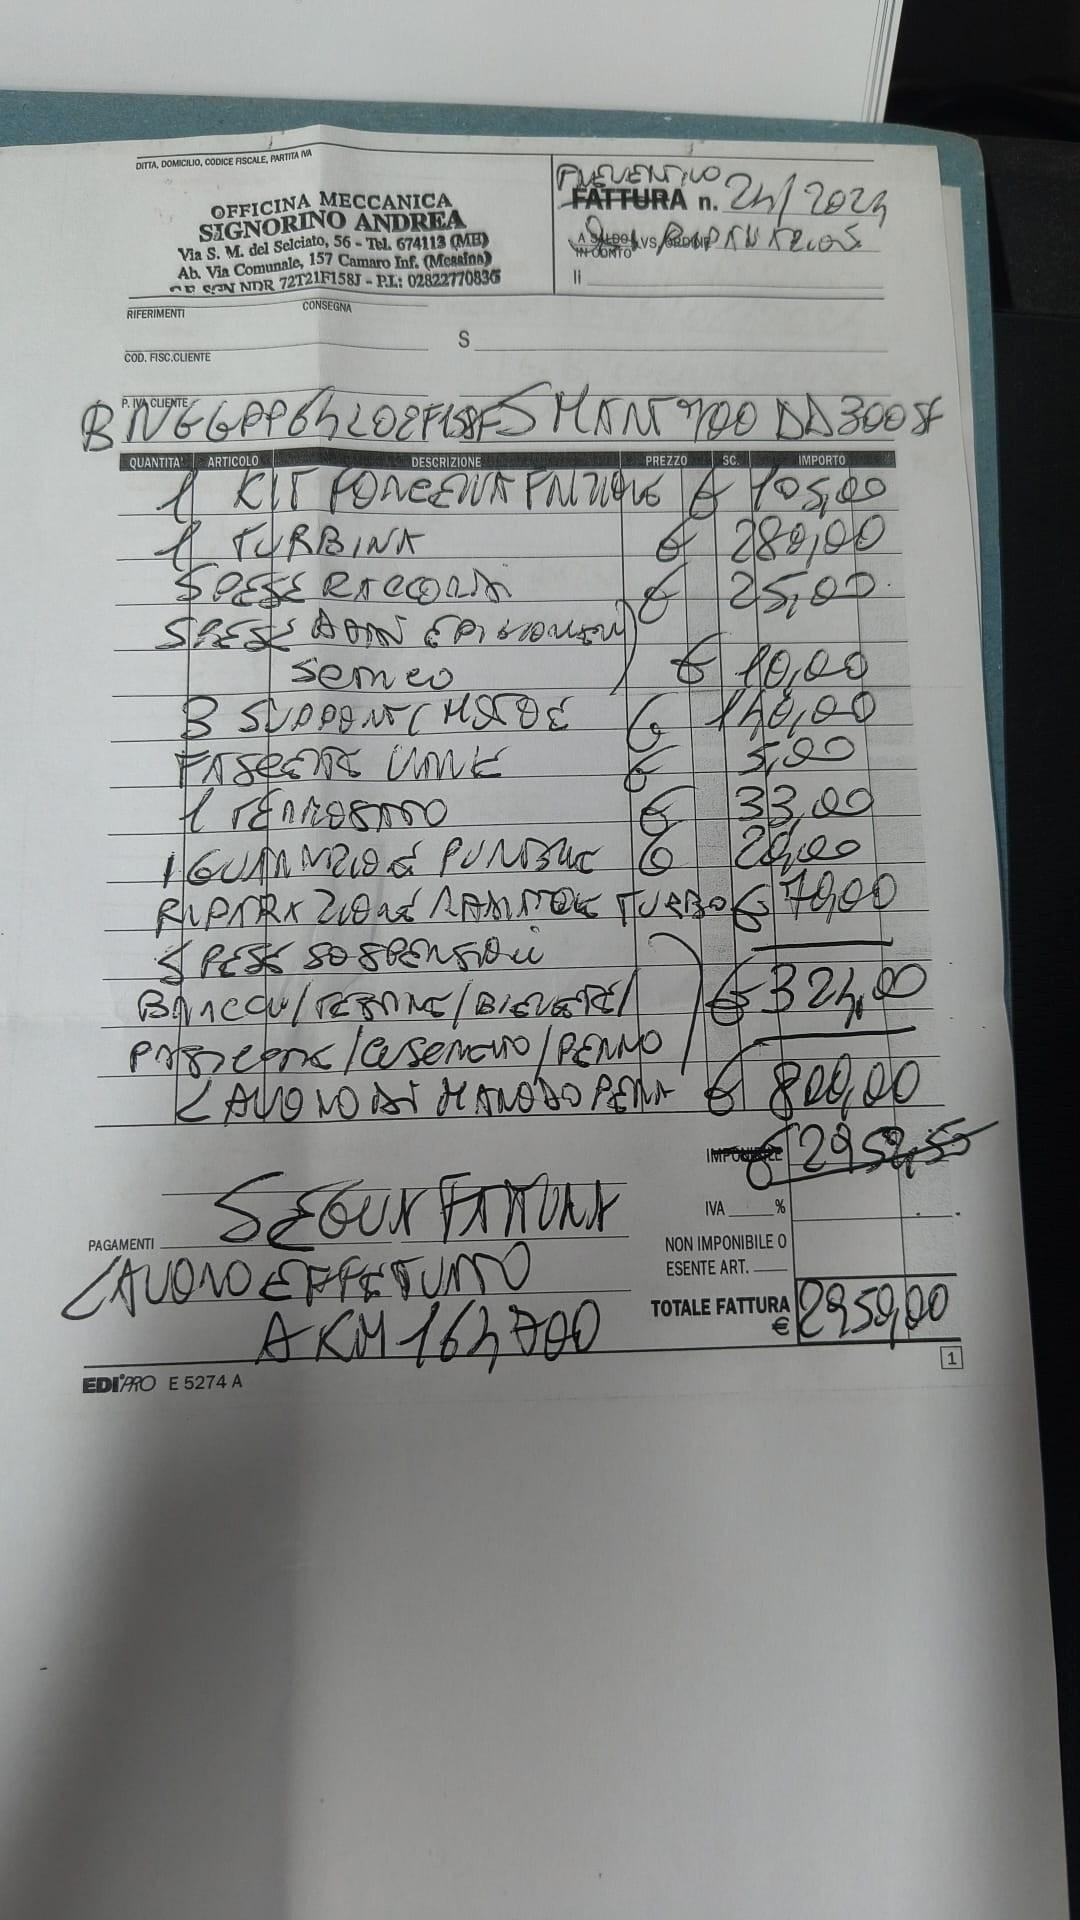 DITTA, DOMICILIO, CODICE FISCALE, PARTITA IVA
OFFICINA MECCANICA
SIGNORINO ANDREA
Via S. M. del Selciato, 56 - Tel. 674113 (ME)
Ab. Via Comunale, 157 Camaro Inf. (Messina)
72T21F158J - P.I.: 02822770836
PREVENTIVO
FATTURA n. 24/2024
A SALDO VS. ORDINE
IN CONTO
li
RIFERIMENTI CONSEGNA
S
COD. FISC.CLIENTE
P. IVA CLIENTE
SMART 700 DD300SF
QUANTITA' ARTICOLO DESCRIZIONE PREZZO SC. IMPORTO
1 KIT FRIZIONE € 405,00
1 TURBINA € 280,00
SPESE RACCORDI € 25,00
SPESE
€ 10,00
3 SUPPORTI MOTORE € 140,00
FASCETTE VARIE € 5,00
1 TERMOSTATO € 33,00
1 GUARNIZIONE PUNTERIE € 20,00
RIPARAZIONE TURBO € 70,00
SPESE SOSPENSIONI
BRACCI/TESTINE/BIELLETTE/ € 324,00
PASTICCHE/CUSCINETTO/PERNO
LAVORO DI MANODOPERA € 800,00
IMPONIBILE € 2959,55
IVA %
SEGUE FATTURA
PAGAMENTI
NON IMPONIBILE O
ESENTE ART.
LAVORO EFFETTUATO
A KM 164,700
TOTALE FATTURA € 2959,00
1
EDIPRO E 5274 A